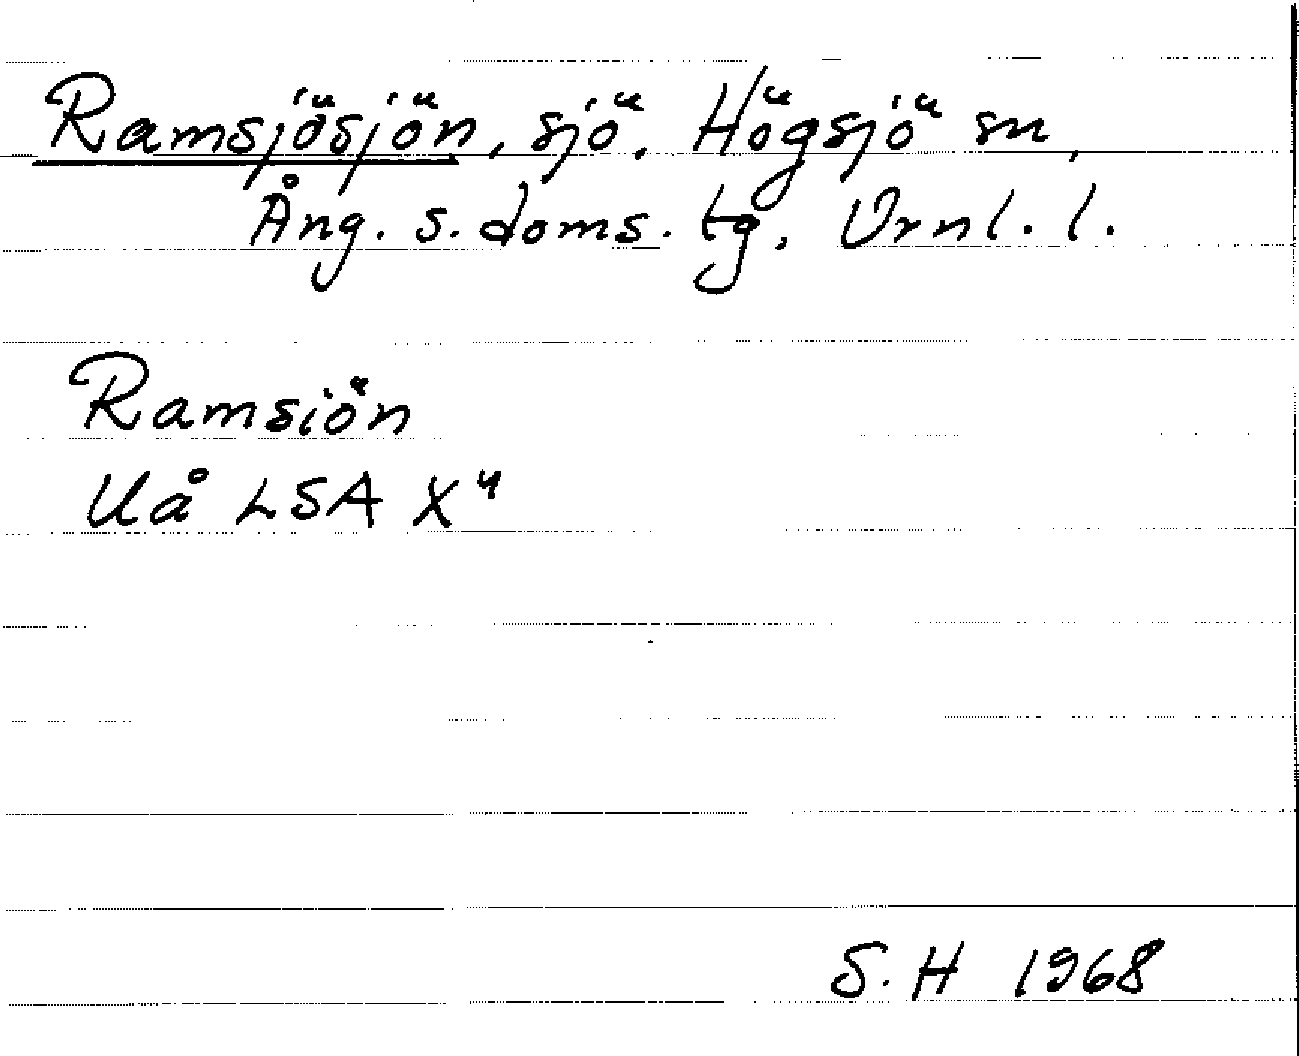 Ramsjösjön, sjö. Högsjö sn,
Ång. s. doms. tg, Vrnl. l.
Ramsiön
Uå LSA X 4
S. H 1968